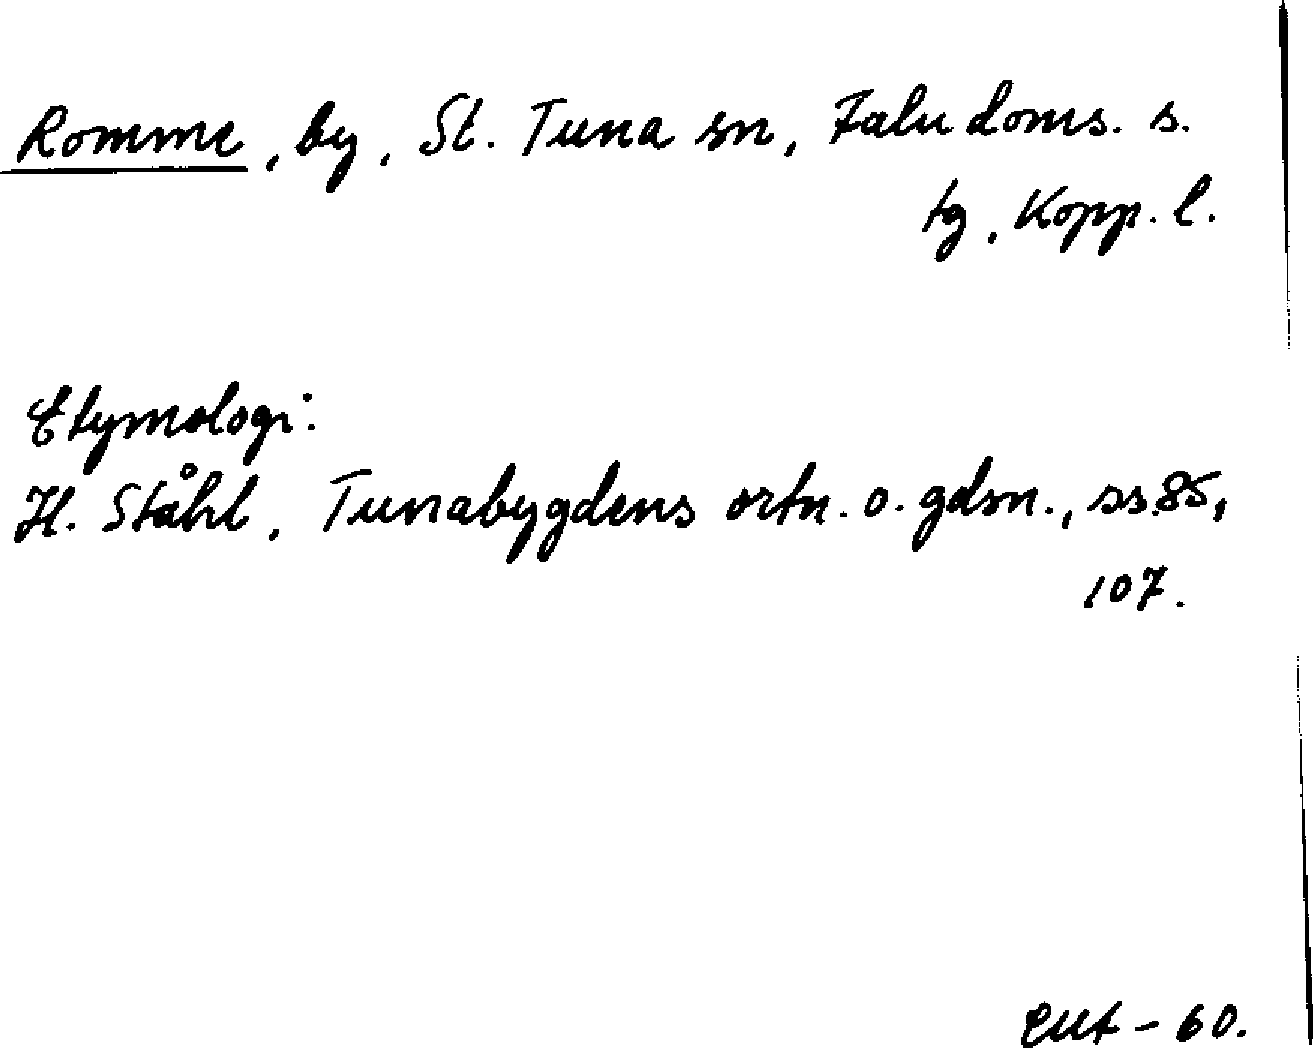 Romme, by, St. Tuna sn, Falu doms. s.
tg, Kopp. l.
Etymologi:
H. Ståhl, Tunabygdens ortn. o. gdsn., ss. 85,
107.
- 60.